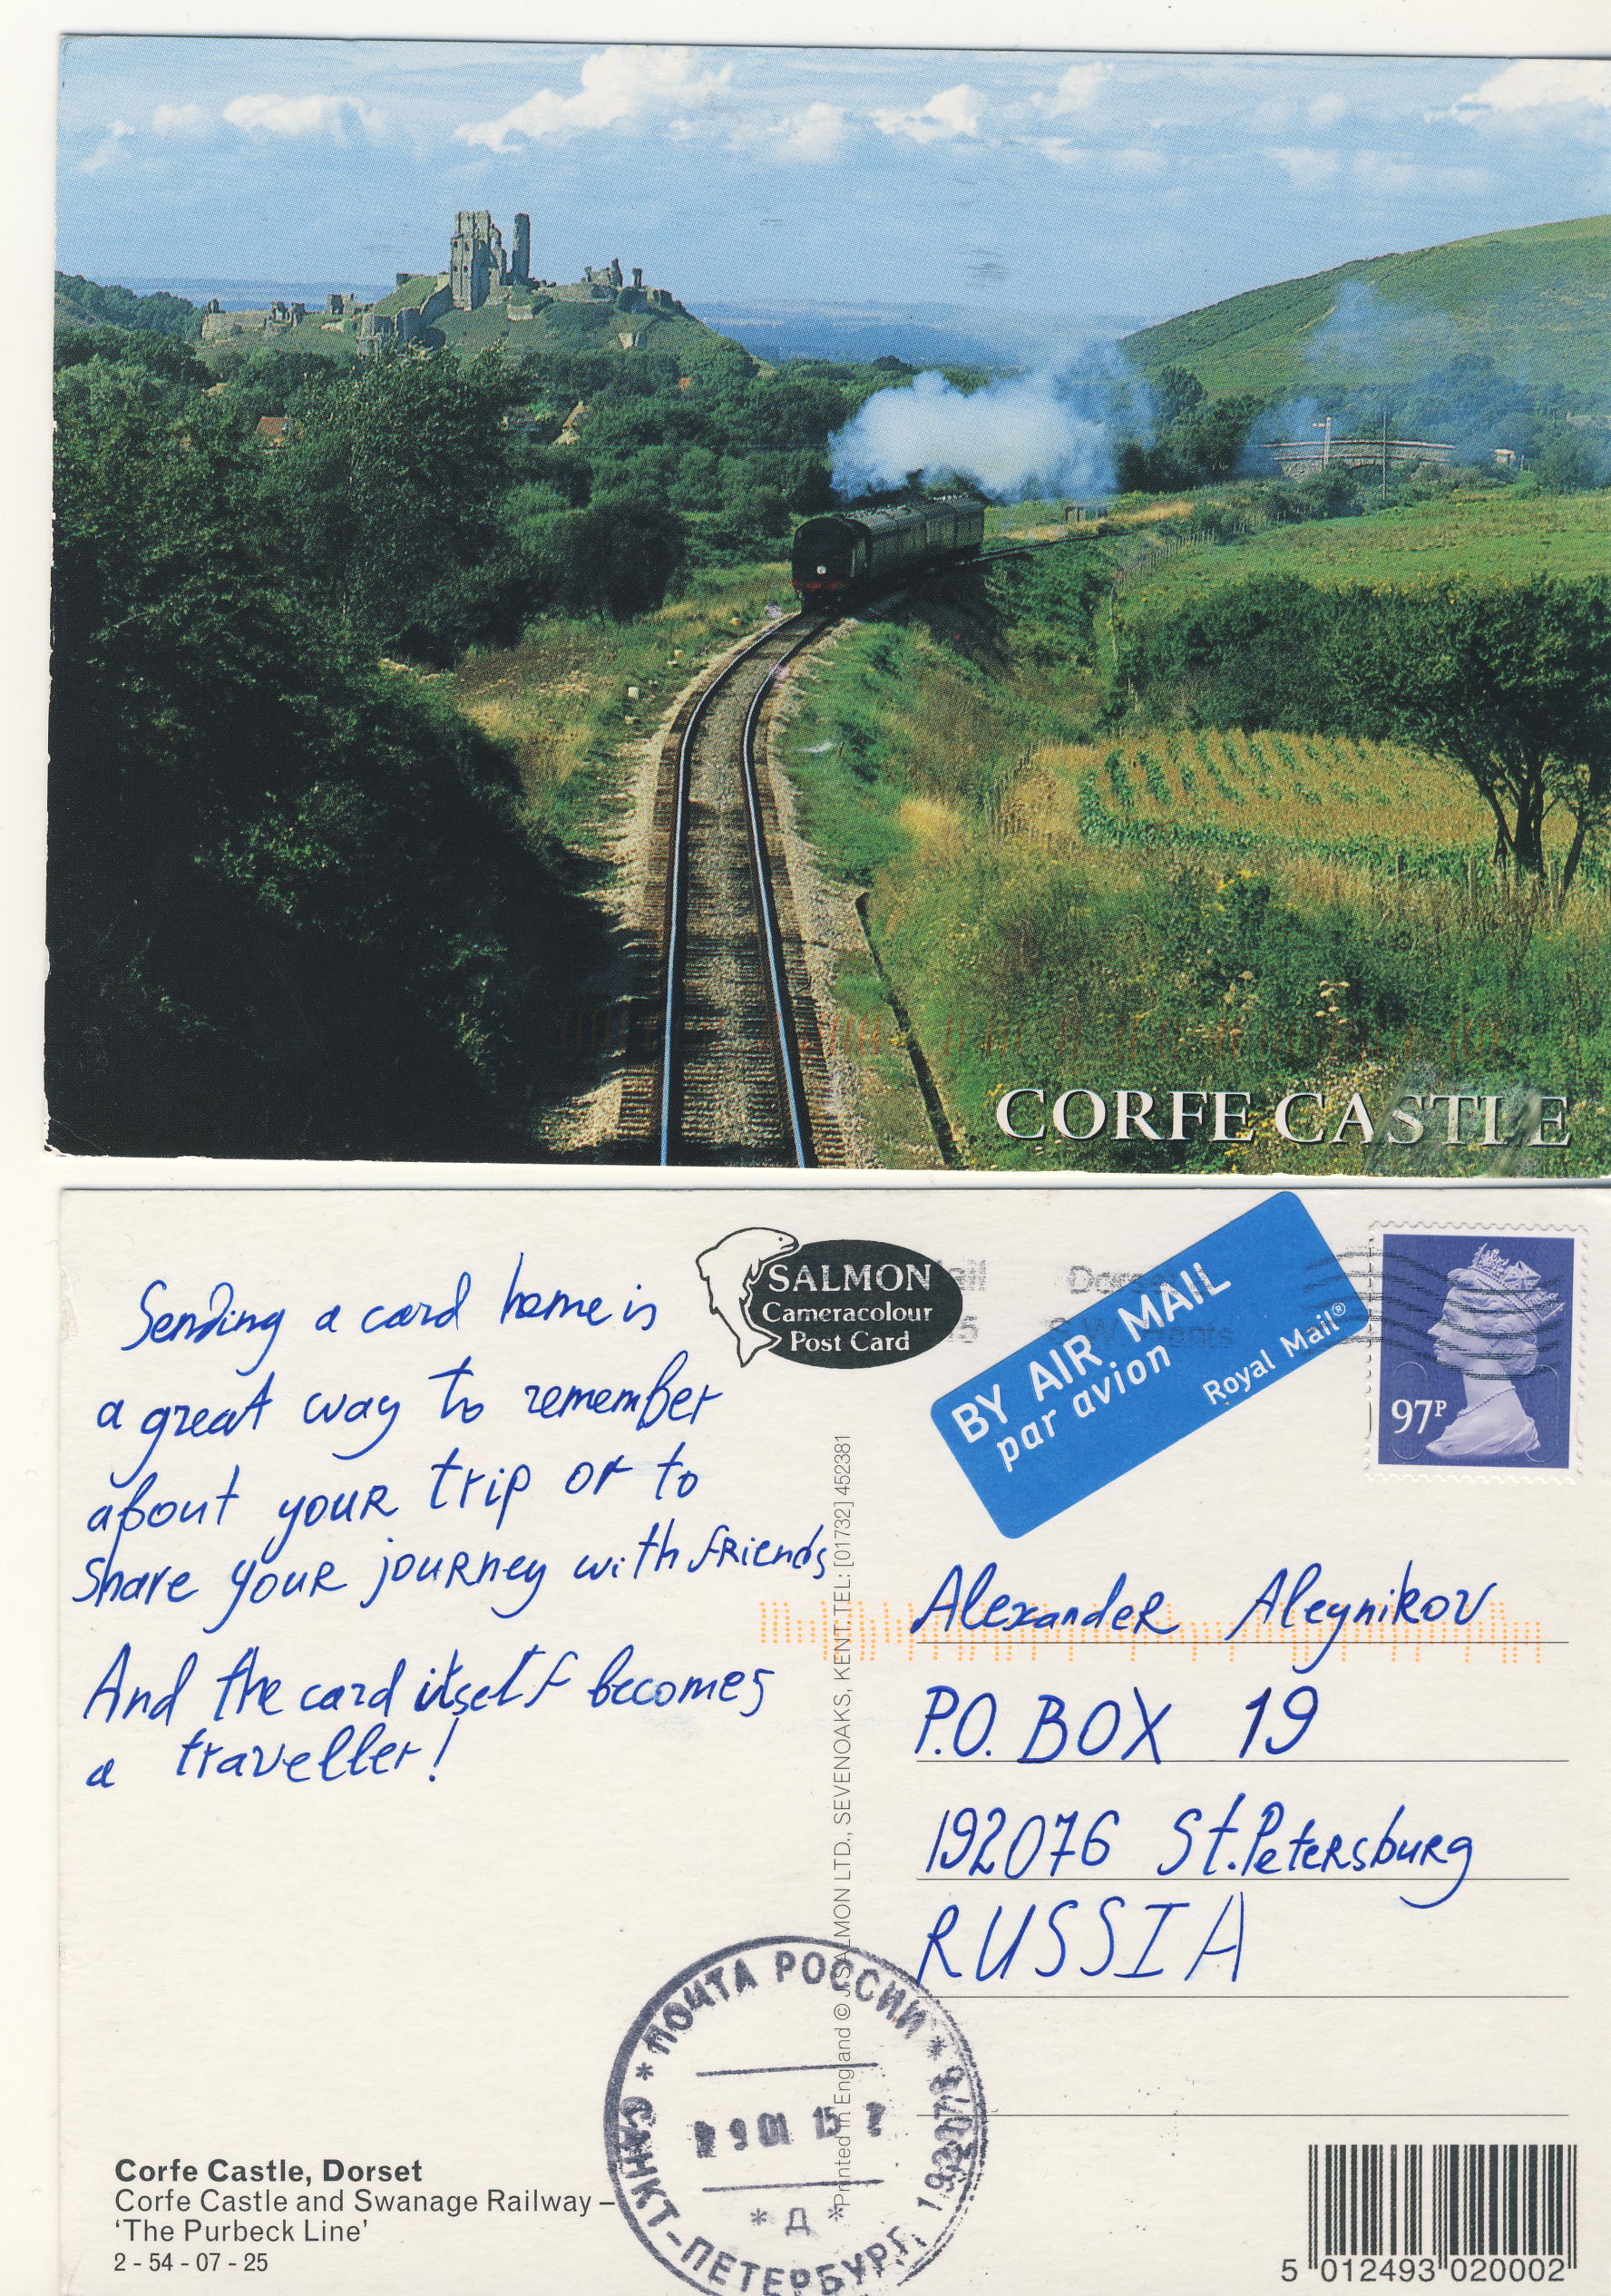 CORFE CASTLE
Sending a card home is
a great way to remember
about your trip or to
share your journey with friends
And the card itself becomes
a traveller!
SALMON
Cameracolour
Post Card
BY AIR MAIL
par avion
Royal Mail®
97P
Alexander Aleynikov
P.O. BOX 19
192076 St.Petersburg
RUSSIA
Printed in England © J SALMON LTD., SEVENOAKS, KENT. TEL: [01732] 452381
* ПОЧТА РОССИИ *
САНКТ-ПЕТЕРБУРГ 192076
01 15
* Д *
Corfe Castle, Dorset
Corfe Castle and Swanage Railway –
‘The Purbeck Line’
2 - 54 - 07 - 25
5 012493 020002